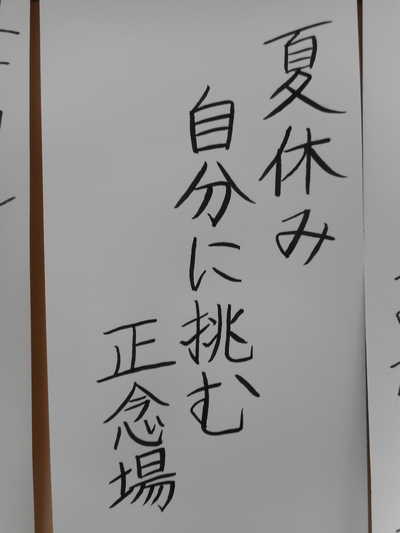 夏休み
自分に挑む
正念場